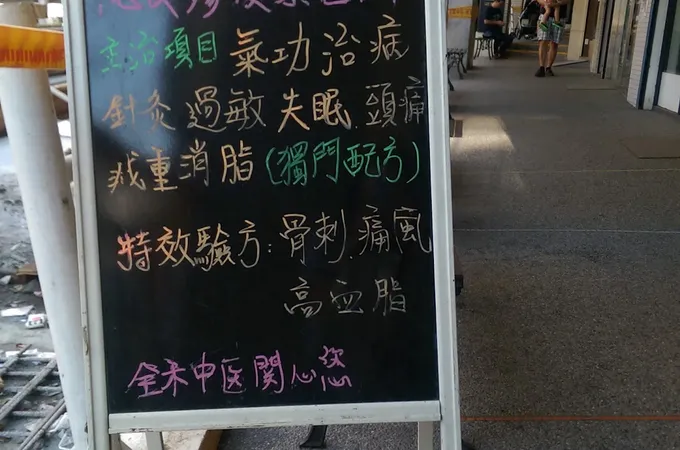 主治項目 氣功治病
針灸 過敏 失眠 頭痛
減重消脂(獨門配方)
特效驗方:骨刺.痛風
高血脂
中医関心您